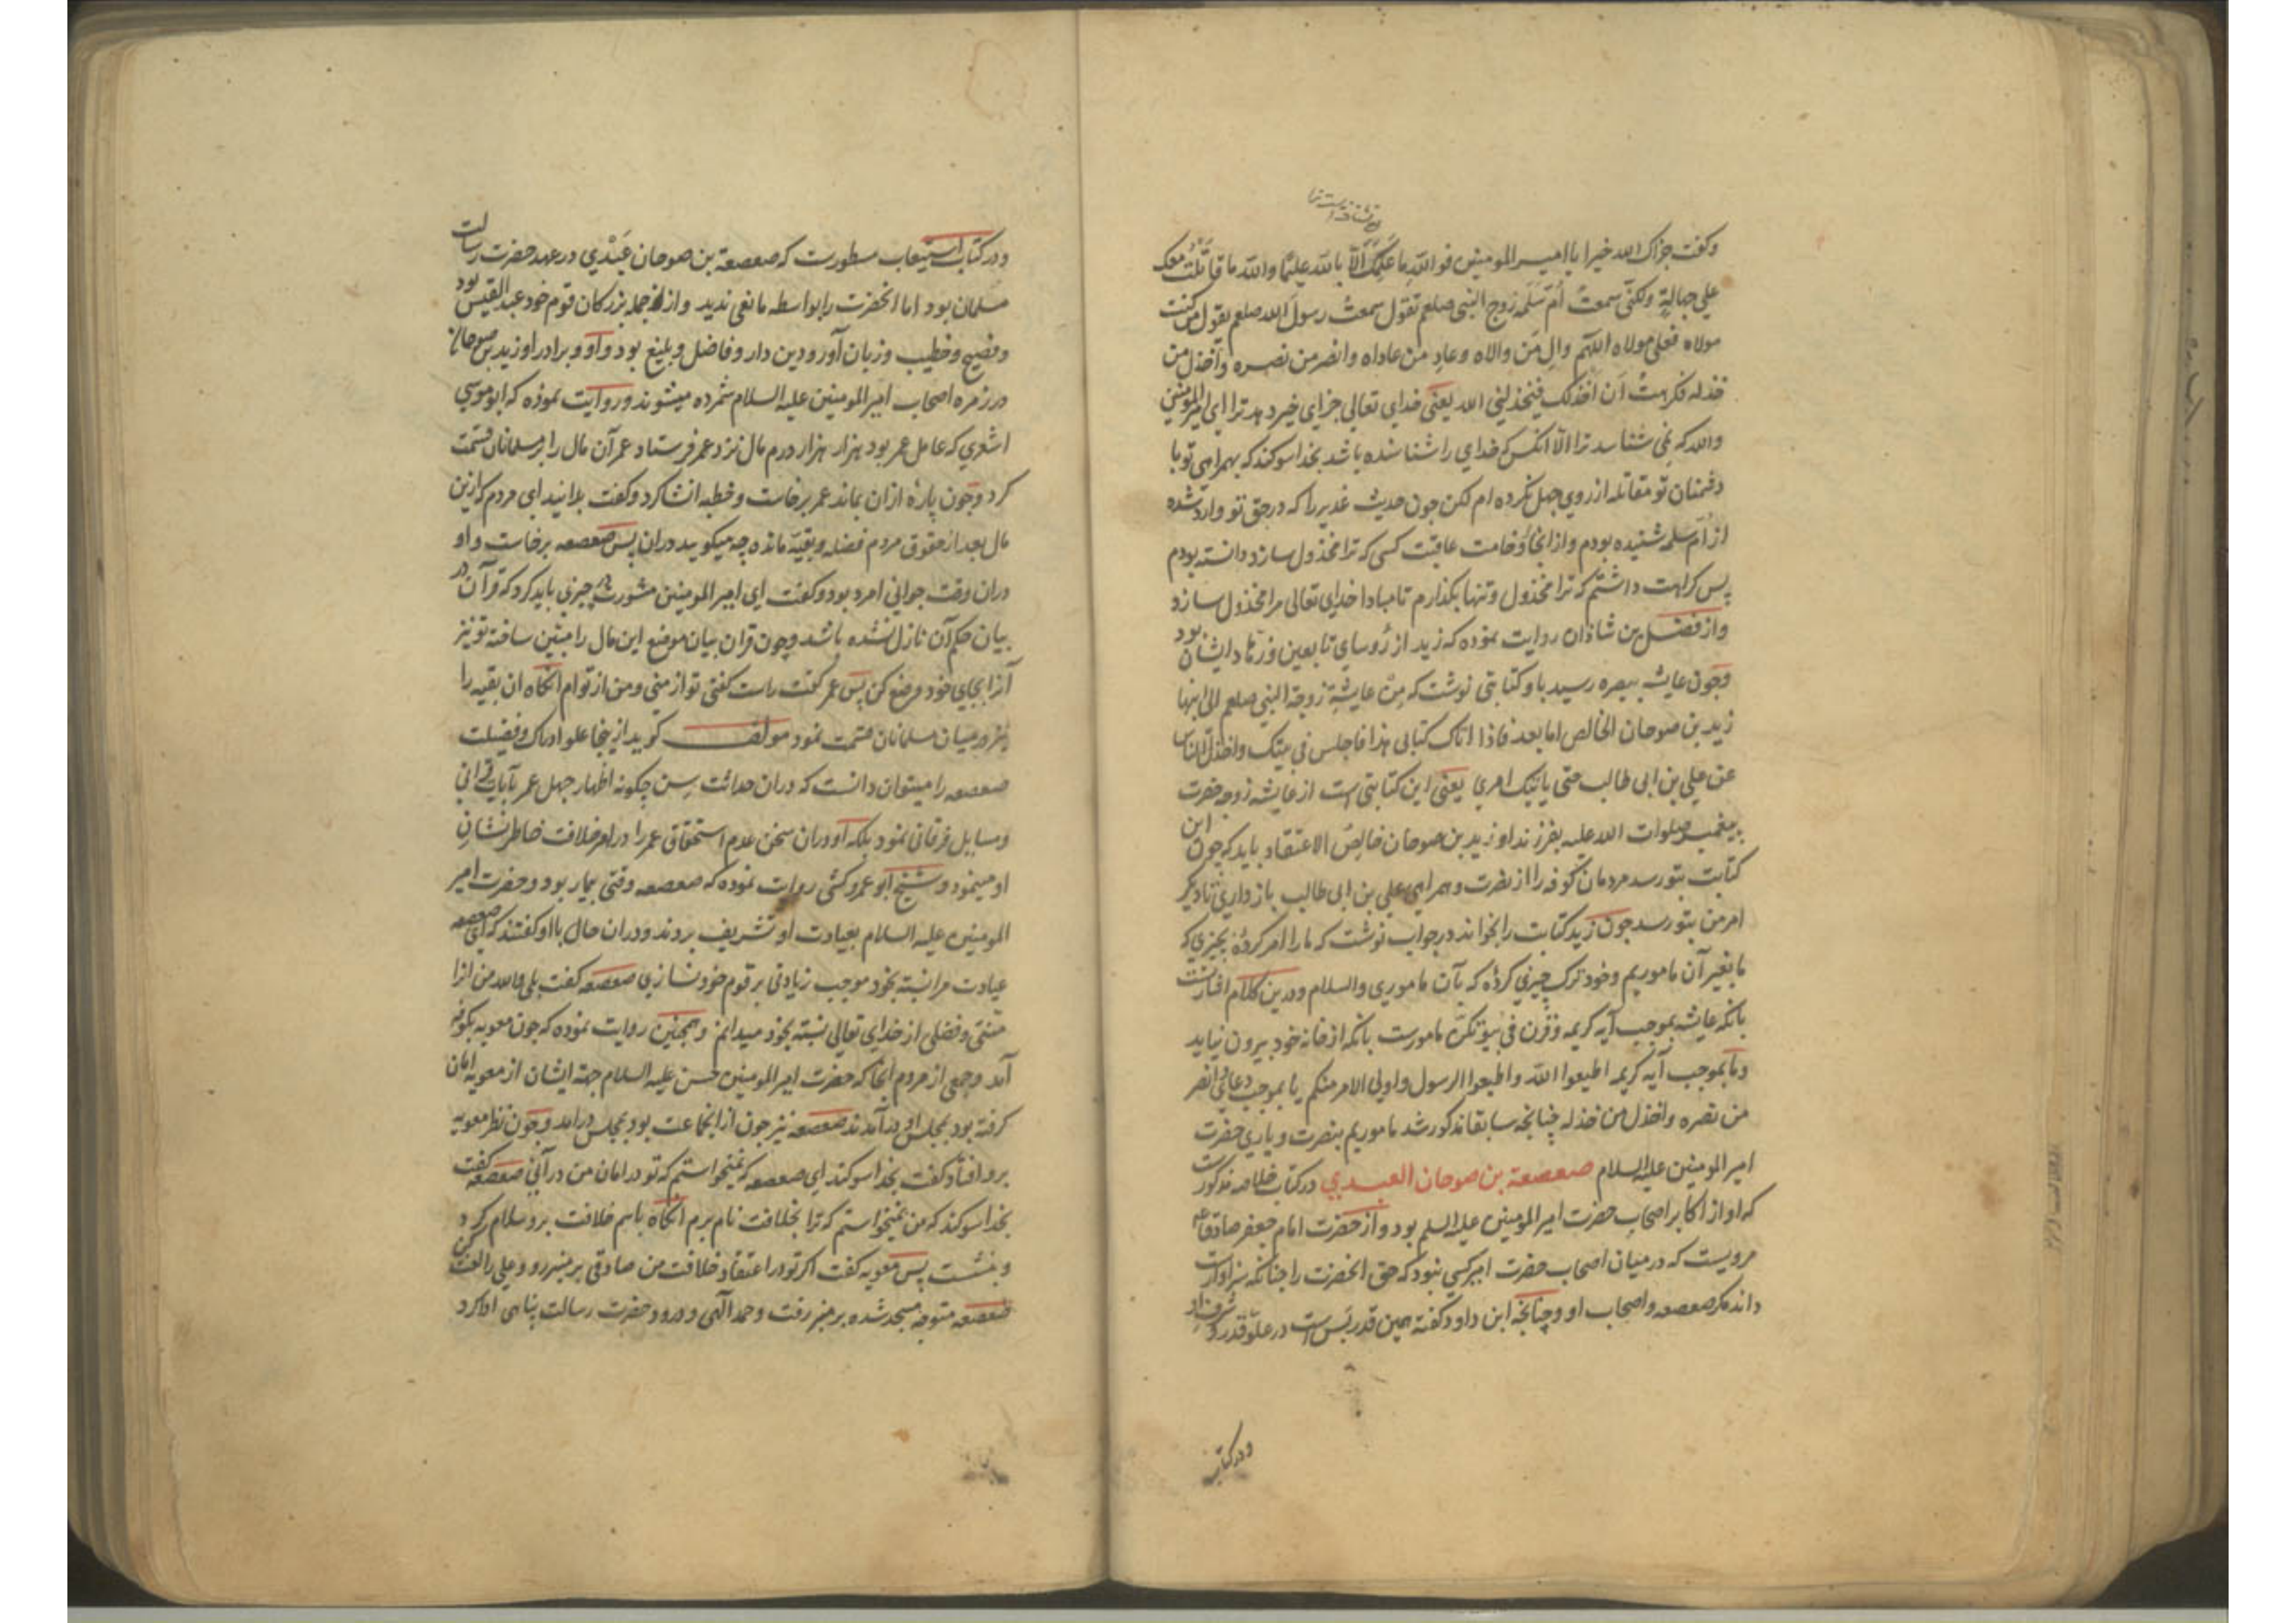 وكفت جزاك الله خيرا يا امير المومنين فوالله ما علمتك الّا بالله عليمًا والله ما قاتلت معك
علي جهالةٍ ولكنّي سمعتُ اُمّ سَلَمه زوج النبي صلعم تقول سمعت رسول الله صلعم يقول من كنت
مولاه فعلي مولاه اللّهم والِ مَن والاه وعادِ من عاداه وانصر من نصره واخذل من
خذله فكرهتُ اَن اَخذلك فيخذلني الله يعني خداى تعالي جزاى خير دهد ترا اى امير المومنين
والله كه نمي شناسد ترا الّا انكس كه خداي را شناسنده باشد بخدا سوكند كه بهمراهي تو با
دشمنان تو مقاتله از روي جهل نكرده ام لكن جون حديث غدير را كه در حق تو وارد شده
از اُم سلمه شنيده بودم و از انجا وخامت عاقبت كسي كه ترا مخذول سازد دانسته بودم
پس كراهت داشتم كه ترا مخذول و تنها بكذارم تا مبادا خداى تعالى مرا مخذول سازد
و از فضل بن شاذان روايت نموده كه زيد از رُوساي تابعين و زهّاد ايشان بود
وجون عايشه ببصره رسيد باو كتابتي نوشت كه مِن عايشةِ زوجة النبي صلعم الى ابنها
زيد بن صوحان الخالص اما بعد فاذا اتاك كتابي هذا فاجلس في بيتك واخذل الناس
عن علي بن ابي طالب حتى ياتيك امري يعني اين كتابتي است از عايشه زوجه حضرت
پيغمبر صلوات الله عليه بفرزند او زيد بن صوحان خالِصُ الاعتقاد بايد كه چون اين
كتابت بتو رسد مردمان كوفه را از نصرت و همراهي علي بن ابى طالب باز داري تا ديكر
امر من بتو رسد جون زيد كتابت را بخواند در جواب نوشت كه ما را امر كردهٔ بچيزي كه
ما بغير آن ماموريم وخود ترك چيزي كردهٔ كه بآن ماموري والسلام و درين كلام اشارتست
بانكه عايشه بموجب آيه كريمه وَقَرْن في بيوتكن مامورست بانكه از خانه خود بيرون نيايد
و ما بموجب آيه كريمه اطيعوا الله واطيعوا الرسول واولي الامر منكم يا بموجب دعائي وانصر
من نصره واخذل من خذله چنانچه سابقا مذكور شد ماموريم بنصرت و ياري حضرت
امير المومنين عليه السلام صعصعة بن صوحان العبدي در كتاب خلاصه مذكورست
كه او از اكابر اصحاب حضرت امير المومنين عليه السلم بود و از حضرت امام جعفر صادق ع
مرويست كه در ميان اصحاب حضرت امير كسي نبود كه حق انحضرت را چنانكه سزاوارست
داند مكر صعصعه و اصحاب او وچنانچه ابن داود كفته همين قدر بَس است در علو قدر و شرف او
در كتاب
و در كتاب استيعاب مسطورست كه صعصعة بن صوحان عَبْدي در عهد حضرت رسالت
مسلمان بود اما انحضرت را بواسطه مانعي نديد و از جمله بزركان قوم خود عبد القيس بود
و فصيح و خطيب و زبان آور و دين دار و فاضل و بليغ بود و او و برادر او زيد بن صوحان
در زمره اصحاب امير المومنين عليه السلام شمرده ميشوند و روايت نموده كه ابو موسي
اشعري كه عامل عمر بود هزار هزار درم مال نزد عمر فرستاد و عمر آن مال را بر مسلمانان قسمت
كرد و چون پارهٔ ازان بماند عمر برخاست و خطبه انشا كرد و كفت بدانيد اى مردم كه ازين
مال بعد از حقوق مردم فضله و بقيّه مانده چه ميكوييد دران پس صعصعه برخاست و او
دران وقت جواني امرد بود و كفت اى امير المومنين مشورت در چيزي بايد كرد كه قرآن در
بيان حكم آن نازل نشده باشد وچون قران بيان موضع اين مال را مبيّن ساخته تو نيز
آنرا بجاي خود وضع كن پس عمر كفت راست كفتي تو از مني ومن از توام انكاه ان بقيه را
نيز در ميان مسلمانان قسمت نمود مولف كويد از ينجا علو ادراك و فضيلت
صعصعه را ميتوان دانست كه دران حداثت سِن چكونه اظهار جهل عمر بآيات قراني
و مسايل فرقاني نمود بلكه او دران سخن عدم استحقاق عمر را در امر خلافت خاطر نشان
او مينمود و شيخ ابو عمرو كشي روايت نموده كه صعصعه وقتي بيمار بود و حضرت امير
المومنين عليه السلام بعيادت او تشريف بردند و دران حال باو كفتند كه اي صعصعه
عيادت مرا نسبة بخود موجب زيادتي بر قوم خود نسازي صعصعه كفت بلى والله من انرا
منّتي و فضلى از خداى تعالى نسبة بخود ميدانم و همچنين روايت نموده كه چون معويه بكوفه
آمد و جمعي از مردم انجا كه حضرت امير المومنين حسن عليه السلام جهة ايشان از معويه امان
كرفته بود بمجلس او درآمدند صعصعه نيز جون از انجماعت بود بمجلس درامد و چون نظر معويه
برو افتاد كفت بخدا سوكند اى صعصعه كه نميخواستم كه تو در امان من در آئي صعصعه كفت
بخدا سوكند كه من نميخواستم كه ترا بخلافت نام برم انكاه باسم خلافت برو سلام كرد
و بنشست پس معويه كفت اكر تو در اعتقاد خلافت من صادقي بر منبر رو و علي را لعن كن
صعصعه متوجه مسجد شده بر منبر رفت و حمد الهى و درود حضرت رسالت پناهى ادا كرد